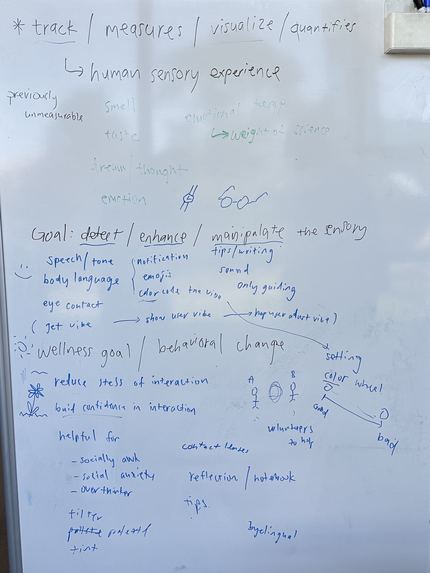 * track / measures / visualize / quantifies
↳ human sensory experience
previously
unmeasurable
smell
taste
emotional
↳ weight of science
dream / thought
emotion
Goal: detect / enhance / manipalate the sensory
speech / tone
body language
eye contact
notification
emojis
color code the vibe
tips / writing
sound
only guiding
( get vibe → show user vibe → user adjust vibe )
wellness goal / behavioral change
reduce stess of interaction
buid confidence in interaction
setting
color wheel
A B
bad
volunteers
to help
helpful for
- socially awk
- social anxiety
- over thinker
contact lenses
reflection / notebook
tips
filter
tint